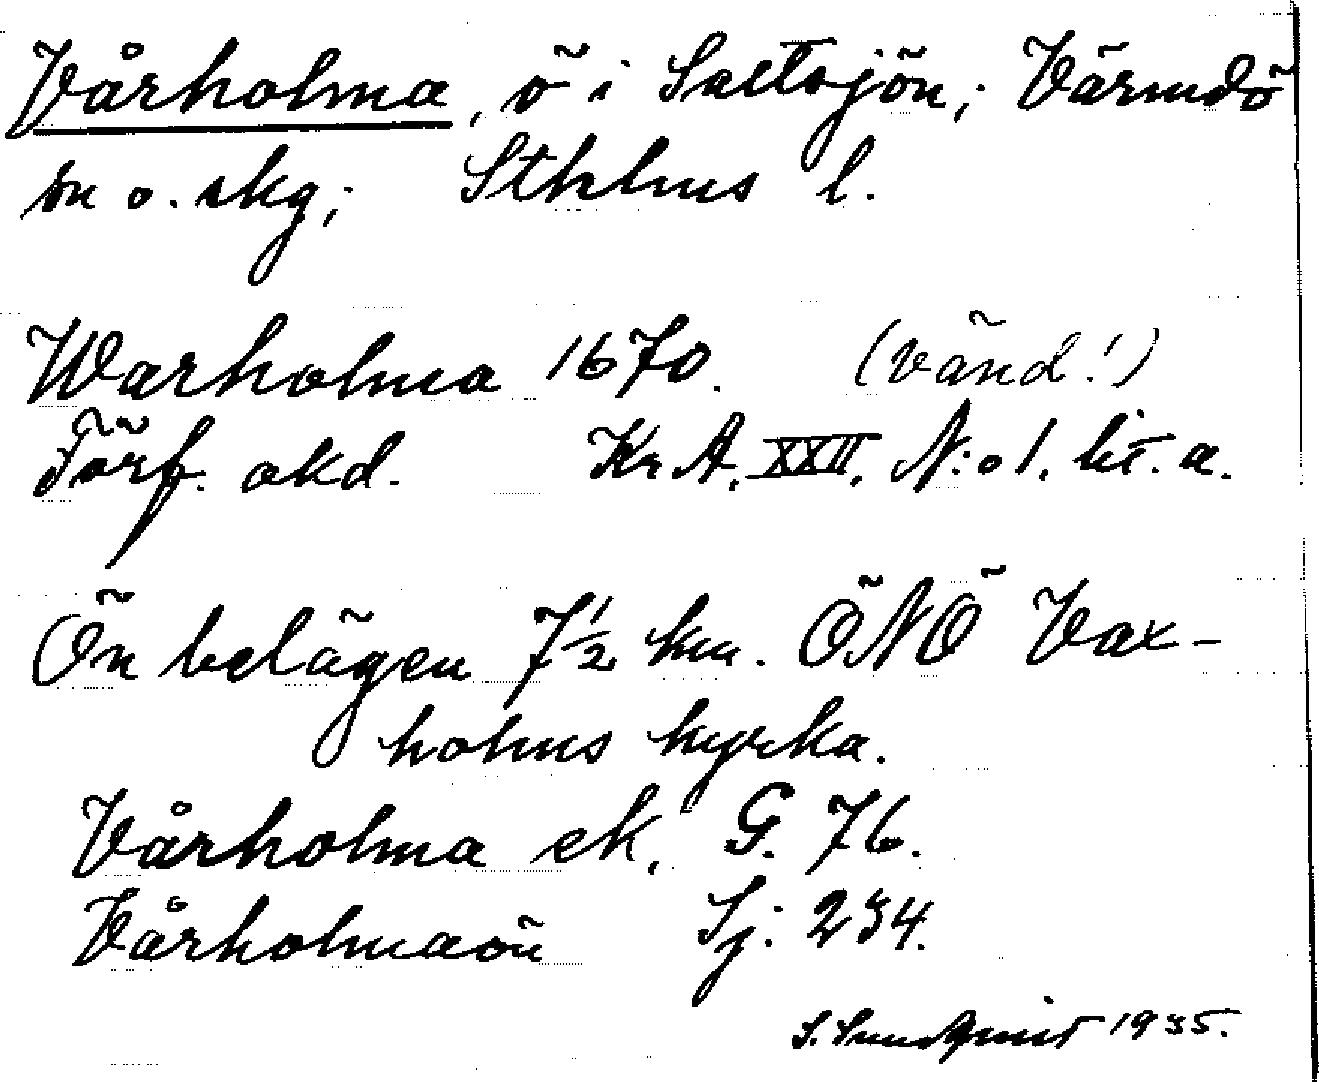 Vårholma, ö i Saltsjön; Värmdö
sn o. skg; Sthlms l.
Warholma 1670. (vänd!)
Förf. akd. Kr A. XXII. N:o 1. lit. a.
Ön belägen 7 1/2 km. ÖNÖ Vax-
holms kyrka.
Vårholma ek. G. 76.
Vårholmaön Sj: 234.
S. Sundquist 1935.